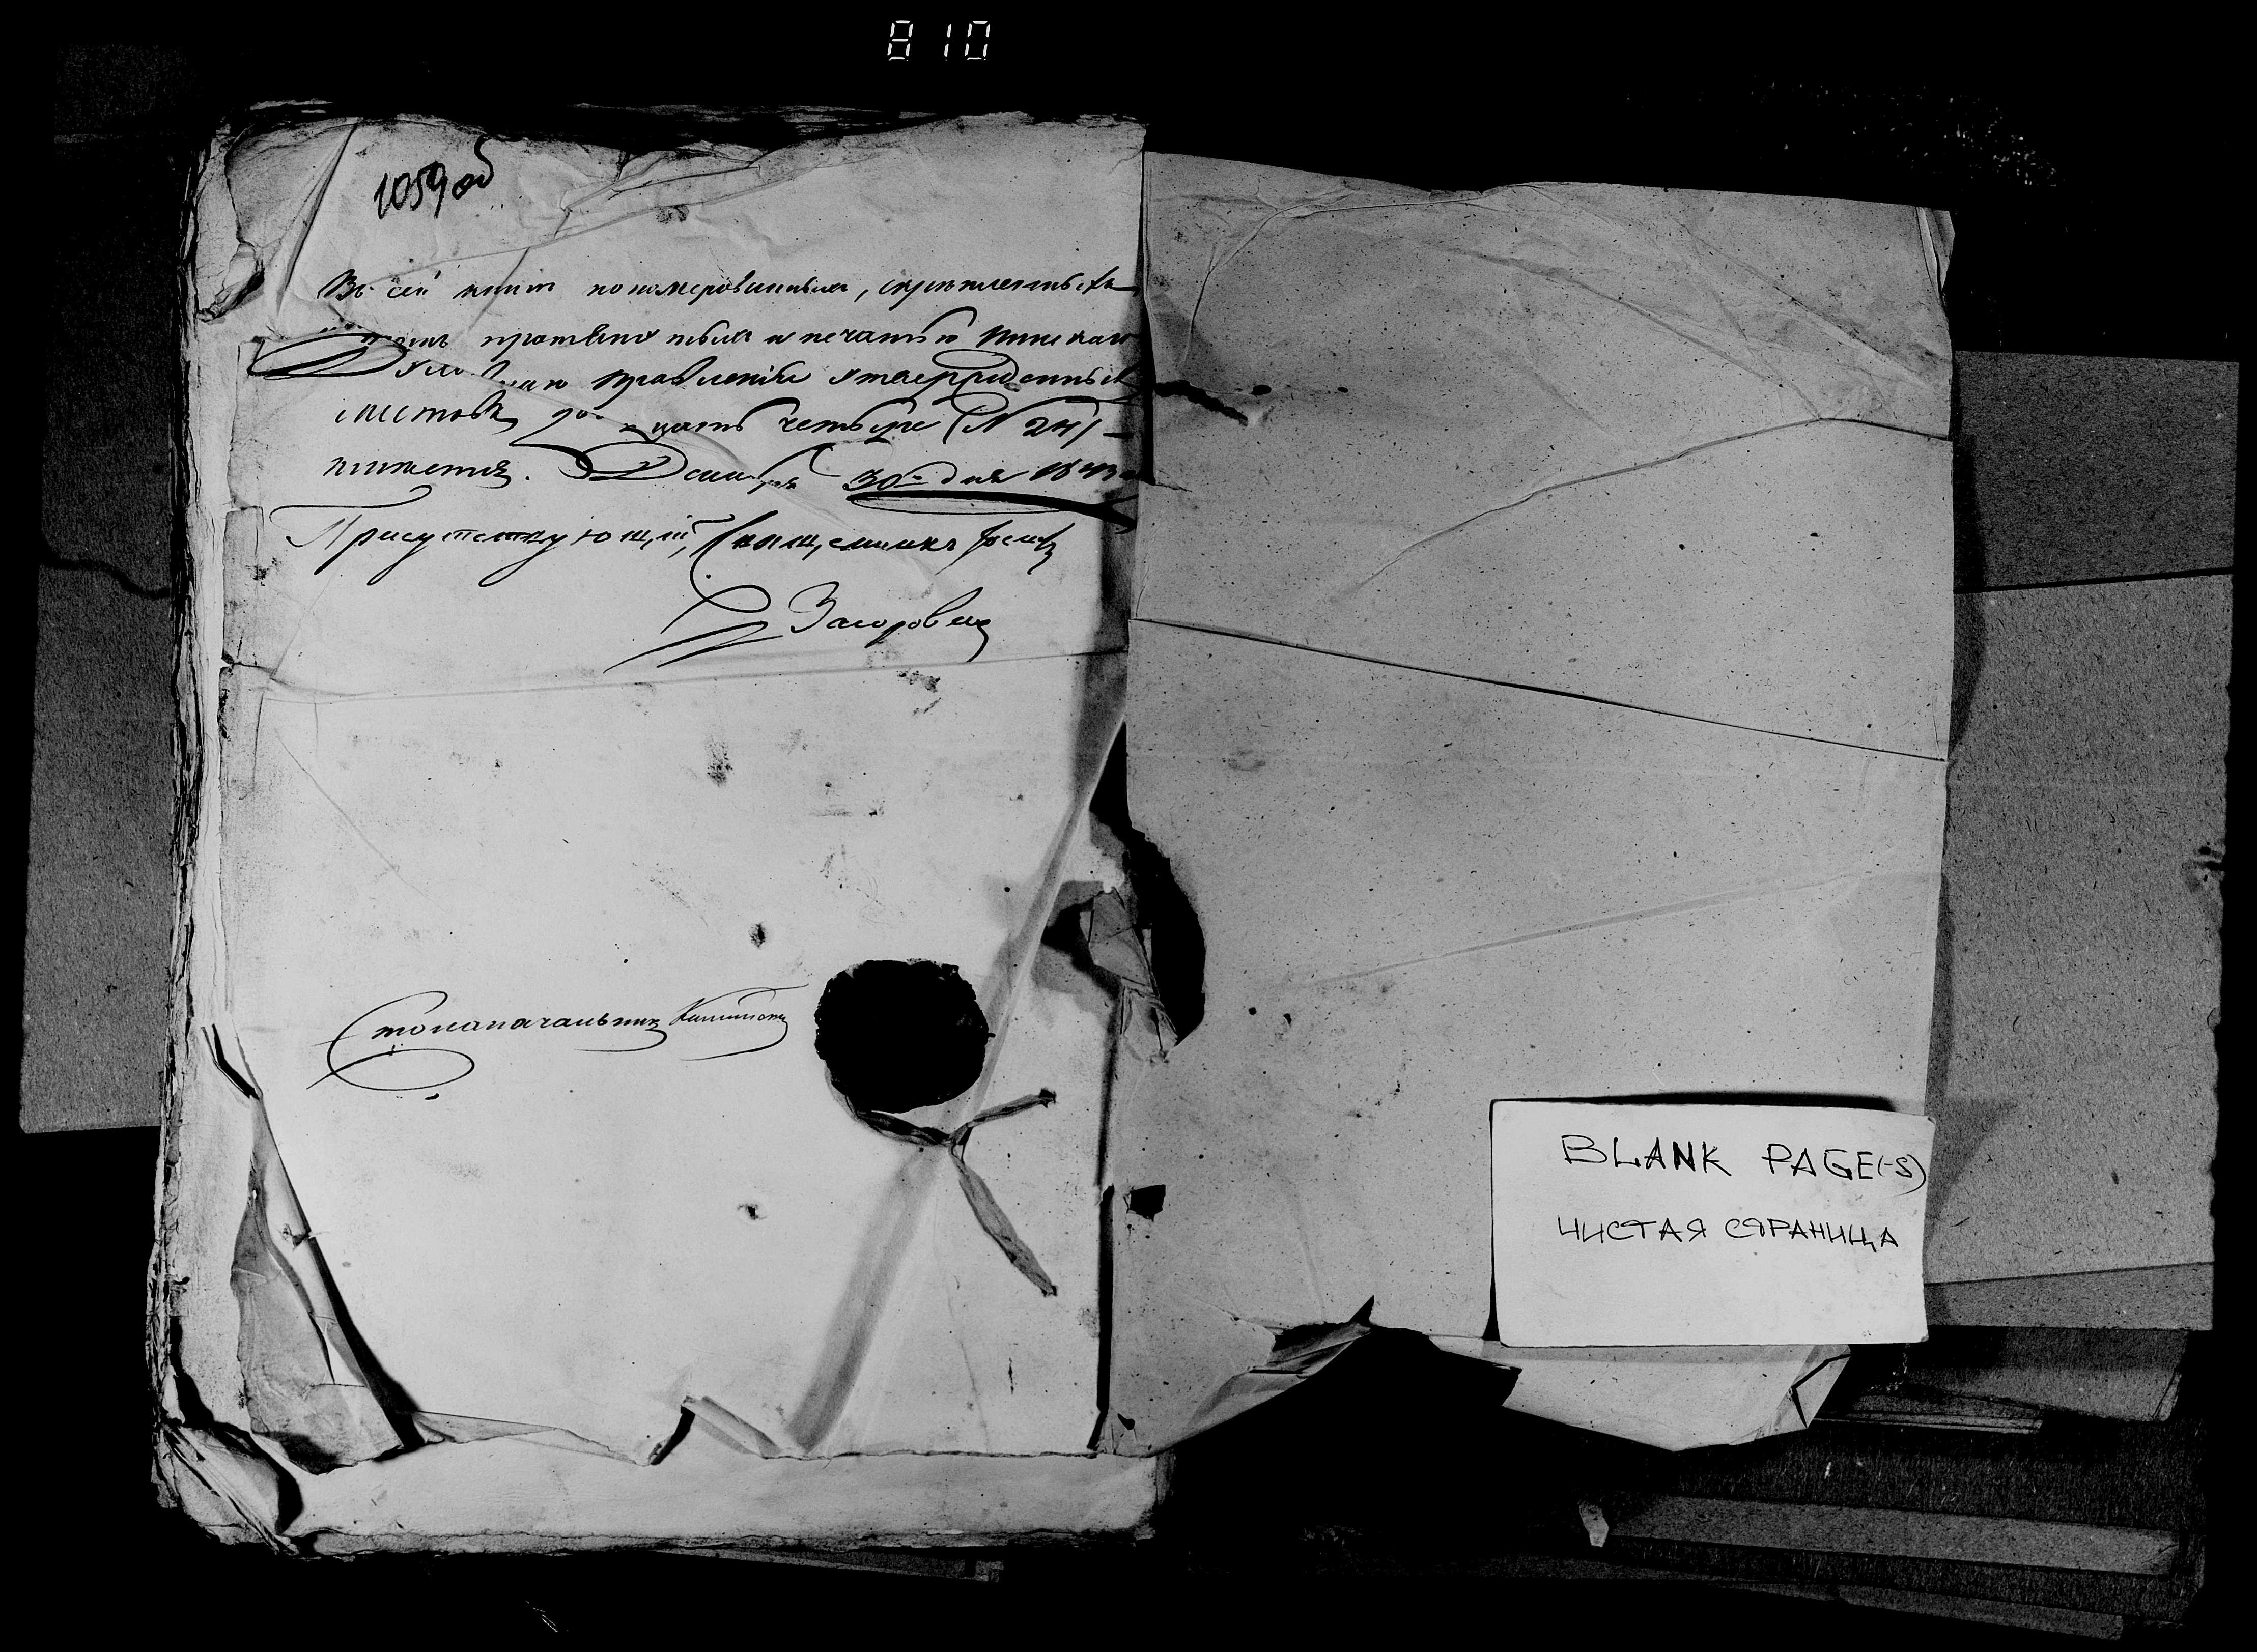 810
1059 об
Въ сей книге пономерованныхъ, скрепленныхъ
протянутыхъ и печатью Пинскаго
Духовнаго Правленія утвержденныхъ
листовъ двадцать четыре (№ 24)
имеется. Декабря 30го дня 1843
Присутствующій, Священникъ Іосифъ
Загоровскій
Столоначальникъ
BLANK PAGE(-S)
ЧИСТАЯ СТРАНИЦА